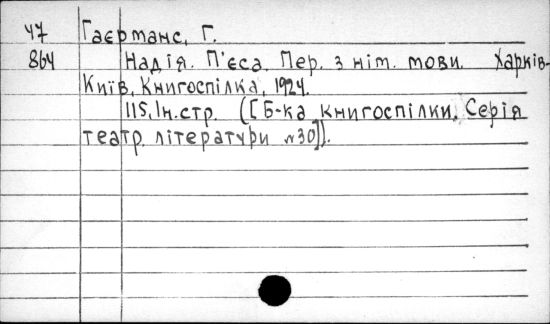 47 Гаєрманс, Г.
864 Надія. П'єса. Пер. з нім. мови. Харків-
Київ, Книгоспілка, 1924.
115, Iн. стр. ([Б-ка Книгоспілки. Серія
театр. літератури №30]).